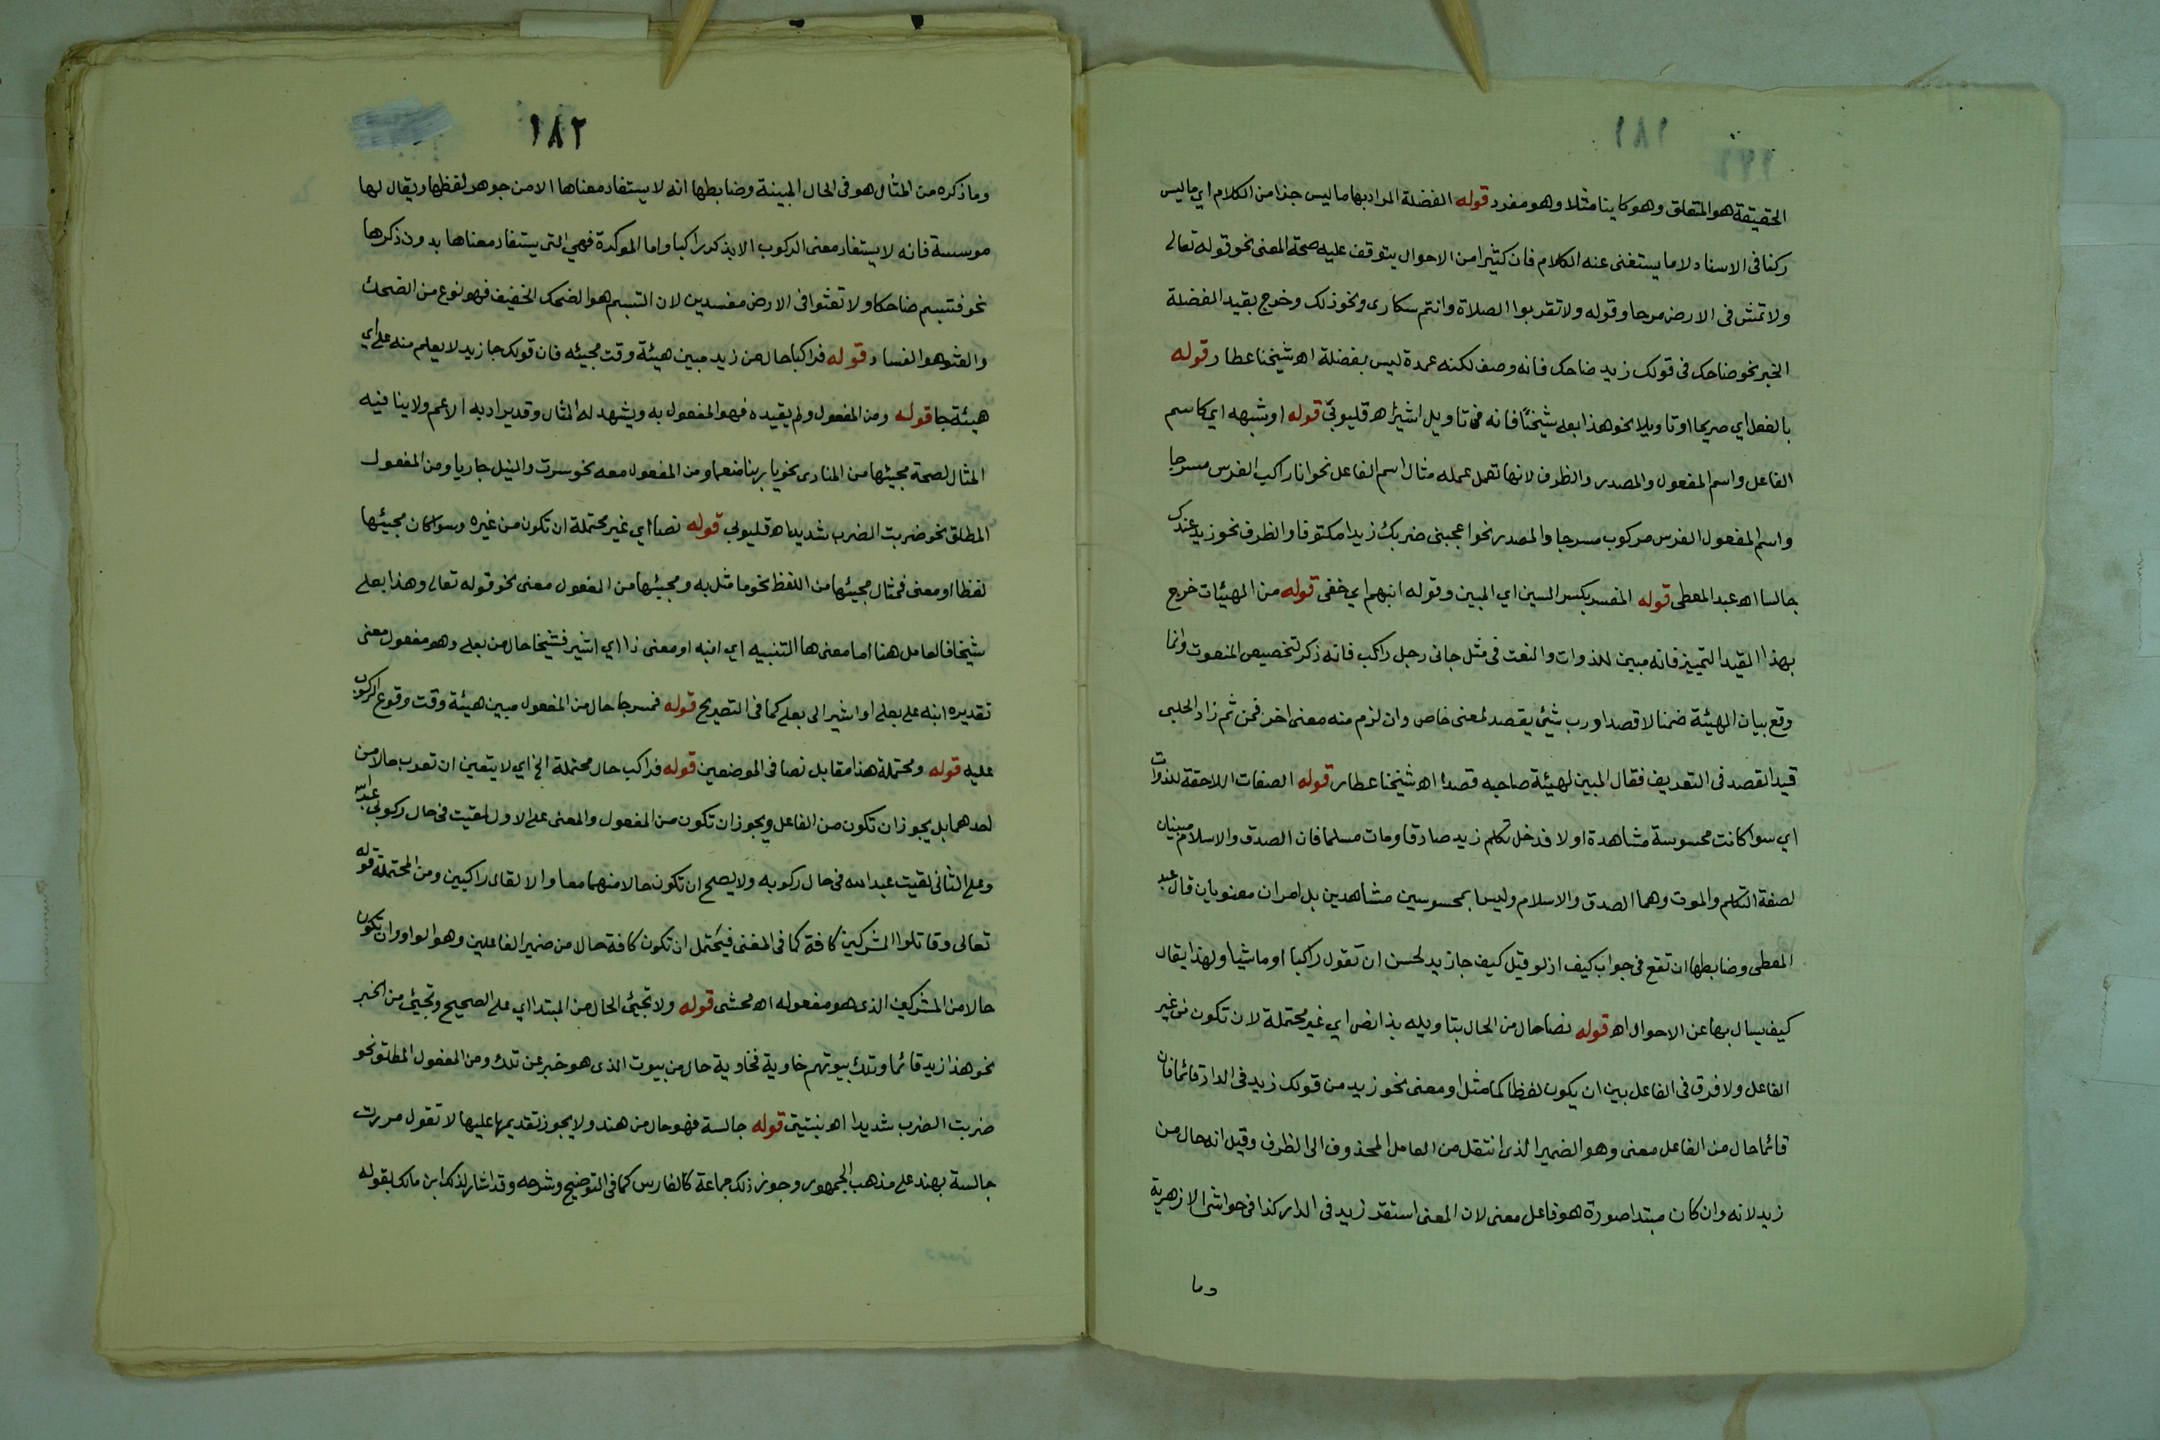 ١٨١
الحقيقة هو المتعلق وهو كاينا مثلا وهو مفرد قوله الفضلة المراد بها ما ليس جزا من الكلام اي ما ليس
ركنا في الاسناد لا ما يستغنى عنه الكلام فان كثيرا من الاحوال يتوقف عليه صحة المعنى نحو قوله تعالى
ولا تمش في الارض مرحا وقوله ولا تقربوا الصلاة وانتم سكارى ونحو ذلك وخرج بقيد الفضلة
الخبر نحو ضاحك في قولك زيد ضاحك فانه وصف لكنه عمدة ليس بفضلة اه شيخنا عطار قوله
بالفعل اي صريحا او تاويلا نحو هذا بعلي شيخا فانه في تاويل اشير اه قليوبي قوله او شبهه اي كاسم
الفاعل واسم المفعول والمصدر والظرف لانها تعمل عمله مثال اسم الفاعل نحو انا راكب الفرس مسرجا
واسم المفعول الفرس مركوب مسرجا والمصدر نحو اعجبني ضربك زيدا مكتوفا والظرف نحو زيد عندك
جالسا اه عبد المعطي قوله المفسر بكسر السين اي المبين وقوله انبهم اي خفى قوله من الهيئات خرج
بهذا القيد التمييز فانه مبين للذوات والنعت في مثل جاني رجل راكب فانه ذكر لتخصيص المنعوت وانما
وقع بيان الهيئة ضمنا لا قصدا ورب شيئ يقصد لمعنى خاص وان لزم منه معنى اخر فمن ثم زاد الحلبي
قيد القصد في التعريف فقال المبين لهيئة صاحبه قصدا اه شيخنا عطار قوله الصفات اللاحقة للذوات
اي سوا كانت محسوسة مشاهدة او لا فدخل تكلم زيد صادقا ومات مسلما فان الصدق والاسلام مبينان
لصفة التكلم والموت وهما الصدق والاسلام وليسا بمحسوسين مشاهدين بل امران معنويان قال عبد
المعطي وضابطها ان تقع في جواب كيف اذ لو قيل كيف جا زيد لحسن ان تقول راكبا او ماشيا ولهذا يقال
كيف يسال بها عن الاحوال اه قوله نصا حال من الحال بتاويله بذا نص اي غير محتملة لان تكون من غير
الفاعل ولا فرق في الفاعل بين ان يكون لفظا كما مثل او معنى نحو زيد من قولك زيد في الدار قائما فان
قائما حال من الفاعل معنى وهو الضمير الذي انتقل من العامل المحذوف الى الظرف وقيل انه حال من
زيد لانه وان كان مبتدا صورة هو فاعل معنى لان المعنى استقر زيد في الدار كذا في حواشي الازهرية
وما
١٨٢
وما ذكره من المثال هو في الحال المبينة وضابطها انه لا يستفاد معناها الا من جوهر لفظها ويقال لها
موسسة فانه لا يستفاد معنى الركوب الا بذكر راكبا واما الموكدة فهي التي يستفاد معناها بدون ذكرها
نحو فتبسم ضاحكا ولا تعثوا في الارض مفسدين لان التبسم هو الضحك الخفيف فهو نوع من الضحك
والعثو هو الفساد قوله فراكبا حال من زيد مبين هيئة وقت مجيئه فان قولك جا زيد لا يعلم منه على اي
هيئة جا قوله ومن المفعول ولم يقيده فهو المفعول به ويشهد له المثال وقد يراد به الاعم ولا ينافيه
المثال لصحة مجيئها من المنادى نحو يا ربنا منعما ومن المفعول معه نحو سرت والنيل جاريا ومن المفعول
المطلق نحو ضربت الضرب شديدا اه قليوبي قوله نصا اي غير محتملة ان تكون من غيره وسوا كان مجيئها
لفظا او معنى فمثال مجيئها من اللفظ نحو ما مثل به ومجيئها من المفعول معنى نحو قوله تعالى وهذا بعلي
شيخا فالعامل هنا اما معنى ها التنبيه اي انبه او معنى ذا اي اشير فشيخا حال من بعلي وهو مفعول معنى
تقديره انبه على بعلي او اشير الى بعلي كما في التصريح قوله فمسرجا حال من المفعول مبين هيئة وقت وقوع الركوب
عليه قوله ومحتملة هذا مقابل نصا في الموضعين قوله فراكب حال محتملة الخ اي لا يتعين ان تعرب حالا من
احدهما بل يجوز ان تكون من الفاعل ويجوز ان تكون من المفعول والمعنى على الاول لقيت في حال ركوبي عبد الله
وعلى الثاني لقيت عبد الله في حال ركوبه ولا يصح ان تكون حالا منهما معا والا لقال راكبين ومن المحتملة قوله
تعالى وقاتلوا المشركين كافة كما في المغني فيحتمل ان تكون كافة حالا من ضمير الفاعلين وهو الواو وان تكون
حالا من المشركين الذي هو مفعوله اه محشى قوله ولا تجيئ الحال من المبتدا اي على الصحيح وتجيئ من الخبر
نحو هذا زيد قائما وتلك بيوتهم خاوية فخاوية حال من بيوت الذي هو خبر عن تلك ومن المفعول المطلق نحو
ضربت الضرب شديدا اه نبتيتي قوله جالسة فهو حال من هند ولا يجوز تقديمها عليها لا تقول مررت
جالسة بهند على مذهب الجمهور وجوز ذلك جماعة كالفارسي كما في التوضيح وشرحه وقد اشار لذلك ابن مالك بقوله